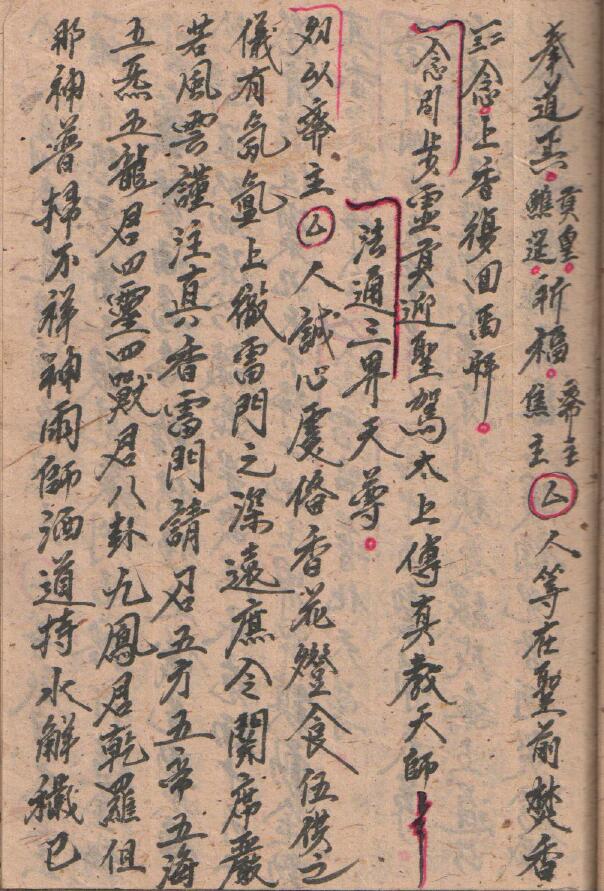 奉道具貢皇醮筵祈福齋主焦主厶人等在聖前焚香
三念上香復回馬拜
念引步靈貢迎聖駕太上傳真教天師
法通三界天尊
以齋主厶人誠心虔俻香花燈食伍供之
儀有氛氳上徹雷門之深遠庶令開席嚴
若風雲謹注真香雷門請召五方五帝五海
五炁五龍君四靈四獸君八卦九鳳君乾羅但
那神普掃不祥神雨師洒道持水解穢已